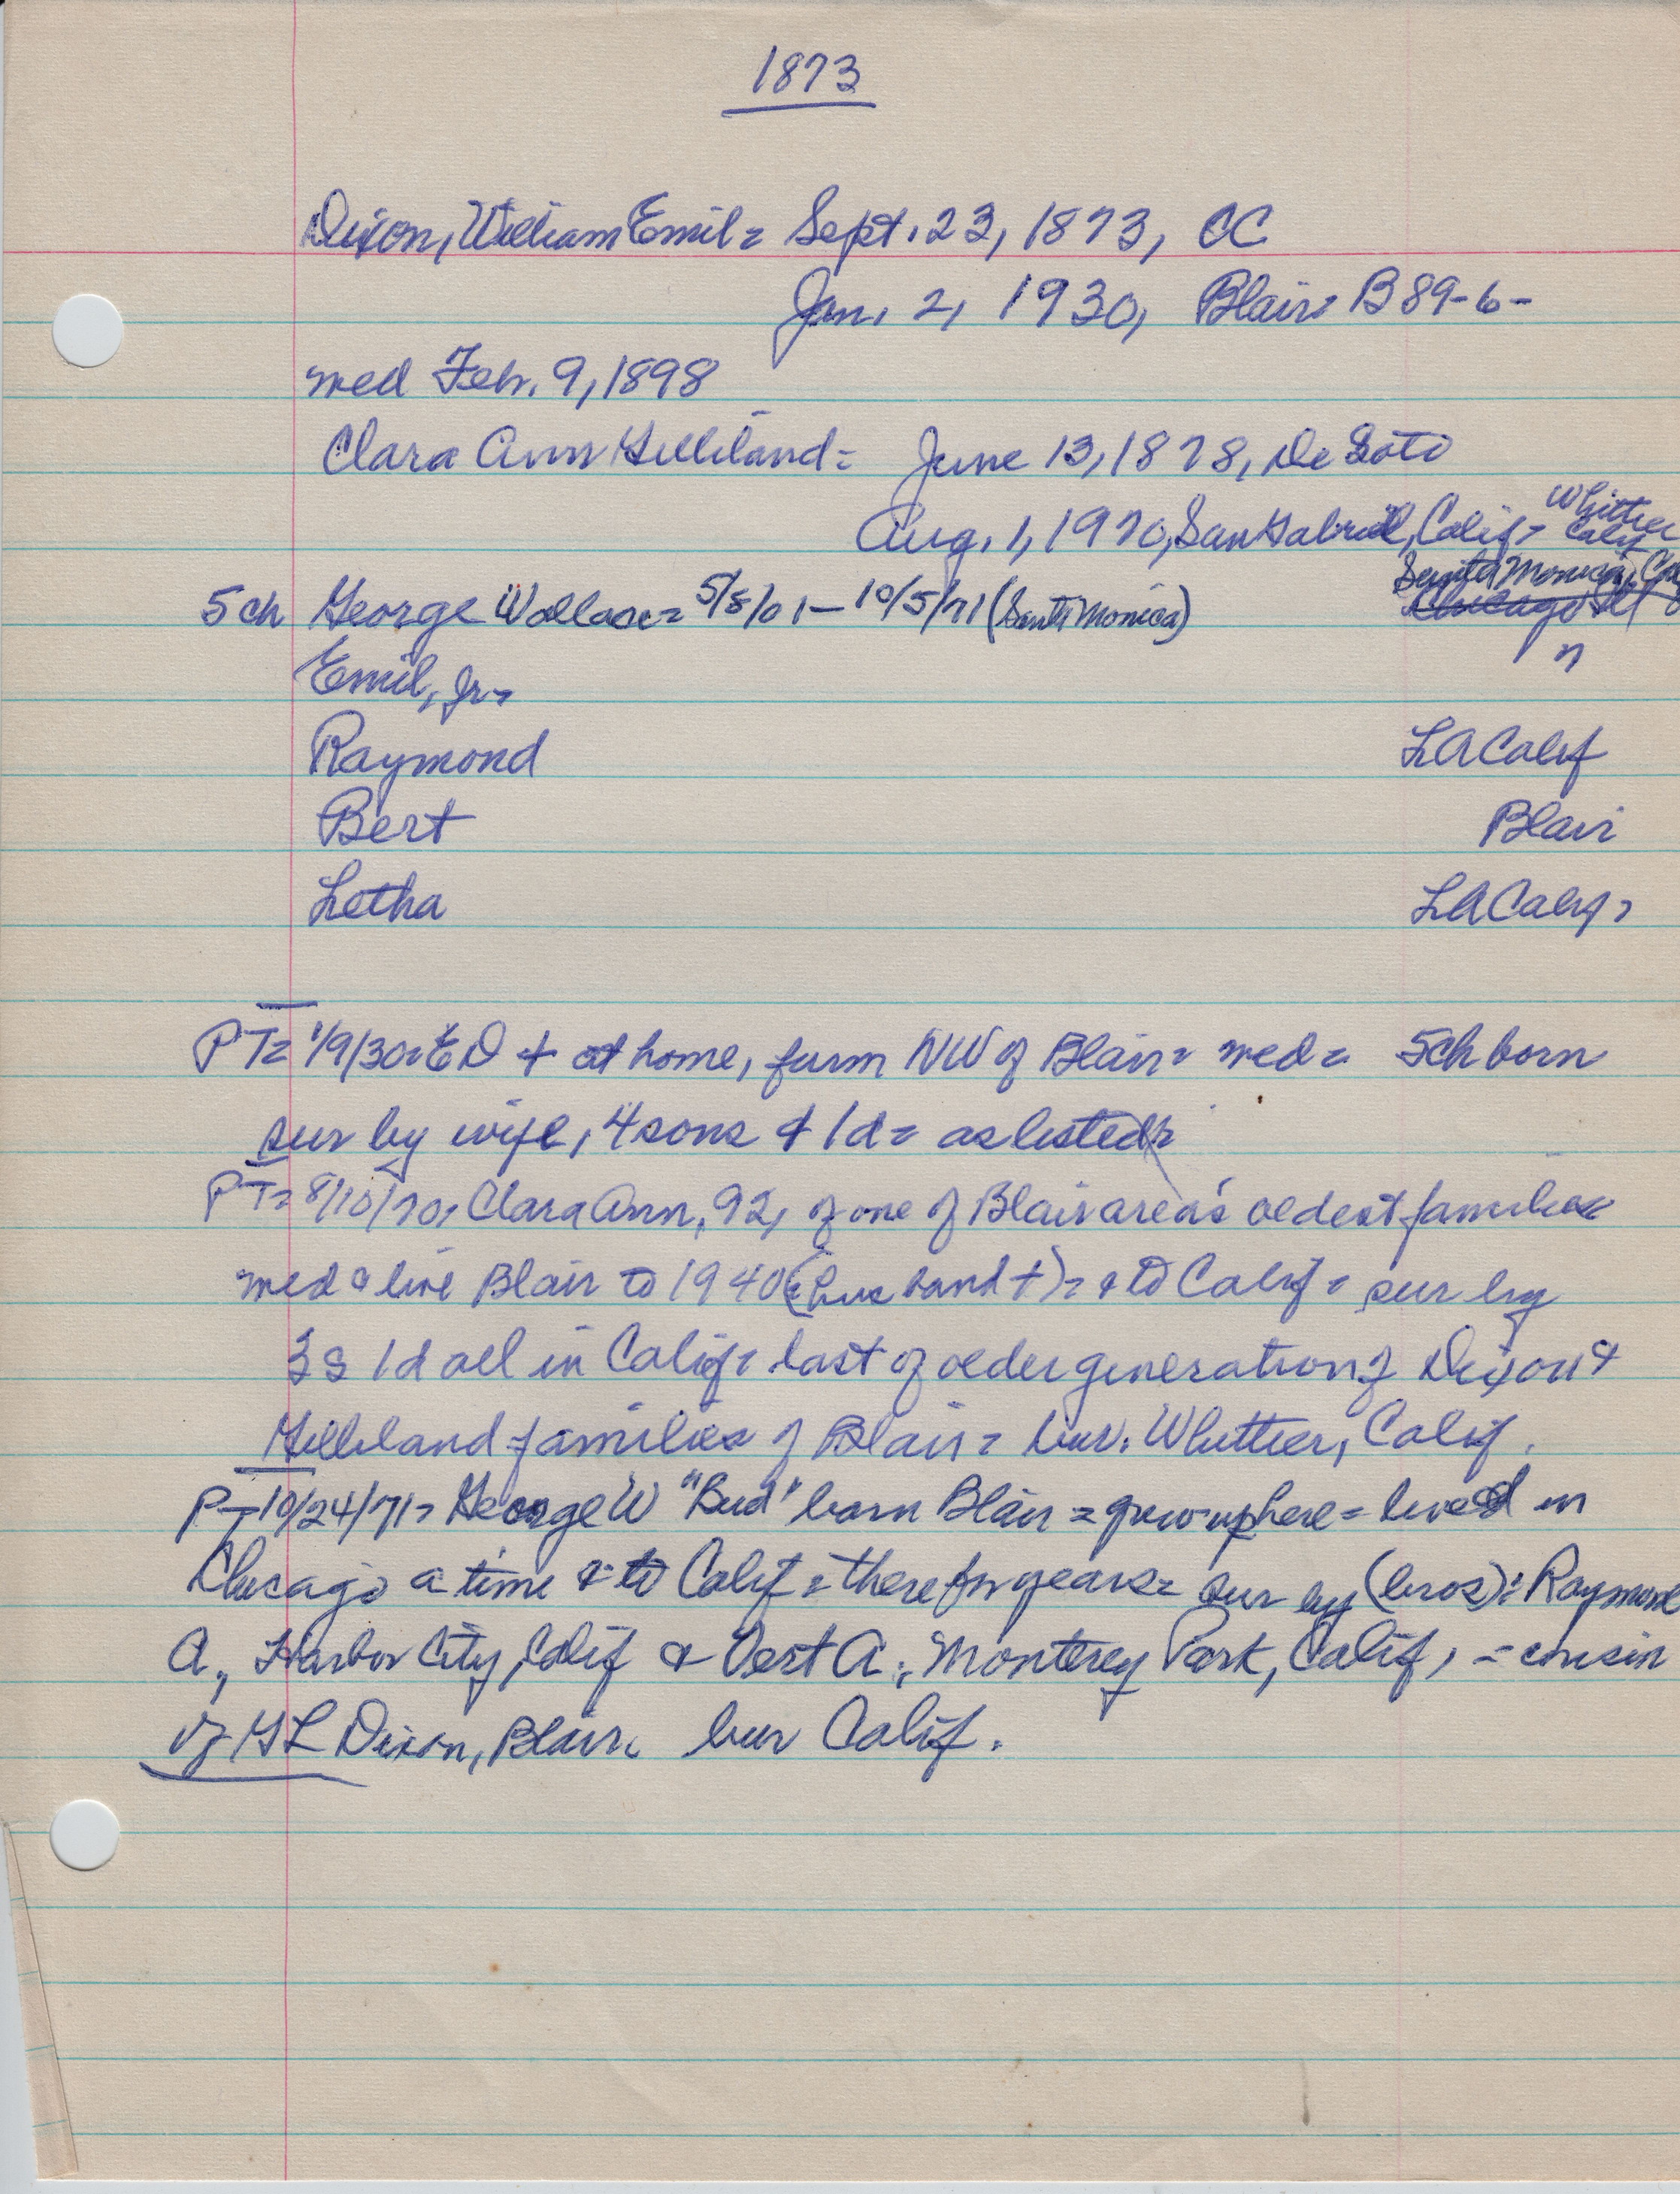 1873
Dixon, William Emil = Sept. 23, 1873, CC
Jan. 2, 1930, Blair = B 89-6-
med Feb. 9, 1898
Clara Ann Gilliland = June 13, 1878, De Soto
Aug. 1, 1970, San Gabriel, Calif = Whittier Calif
Santa Monica, Calif
5 ch George Wallace = 5/8/01 - 10/5/71 (Santa Monica) Chicago Ill
Emil, Jr = "
Raymond LA Calif
Bert Blair
Letha LA Calif =
PT = 1/9/30 = ED + at home, farm NW of Blair = med = 5 ch born
sur by wife, 4 sons & 1 d = as listed
PT = 8/10/70, Clara Ann, 92, of one of Blair area's oldest families
med & live Blair to 1940 (husband +) = & to Calif = sur by
3 s 1 d all in Calif = last of older generation of Dixon &
Gilliland families of Blair = bur. Whittier, Calif.
PT 10/24/71 = George W "Bud" born Blair = grew up here = lived in
Chicago a time & to Calif = there for years = sur by (bros) = Raymond
A., Harbor City, Calif & Bert A., Monterey Park, Calif, = cousin
of GL Dixon, Blair. bur Calif.